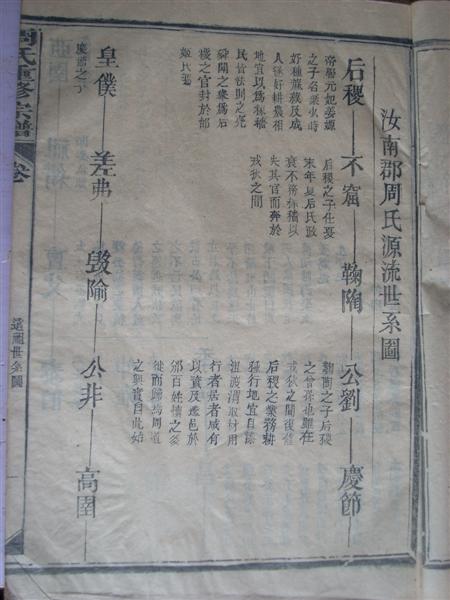 汝南郡周氏源流世系圖
后稷 不窟 鞠陶 公劉 慶節
帝嚳元妃姜嫄
之子名棄火時
好種蔴菽及成
人遂好耕農相
地宜以為稼穡
民皆法則之堯
舜聞之舉為后
稷之官封於邰
姬氏焉
后稷之子仕夏
末年夏后氏政
衰不務稼穡以
失其官而奔於
戎狄之間
鞠陶之子后稷
之曾孫也雖在
戎狄之間復修
后稷之業務耕
種行地宜自漆
沮渡渭取材用
行者居者咸有
以資及遷邑於
邠百姓懷之多
徙而歸焉周道
之興實自此始
皇僕 差弗 毀隃 公非 高圉
慶節之子
周氏重修宗譜 卷
遠祖世系圖 一